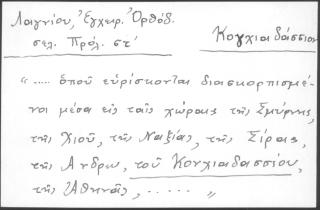 Λαγνίου, Ἐγχειρ. Ὀρθόδ.
σελ. Πρόλ. στ'
Κογχιαδάσσιον
" ..... ὁποῦ εὑρίσκονται διασκορπισμέ-
νοι μέσα εἰς ταῖς χώραις τῆς Σμύρνης,
τῆς Χιοῦ, τῆς Ναξίας, τῆς Σίρας,
τῆς Ἀνδρω, τοῦ Κουχιαδασσίου,
τῆς Ἀθηνᾶς, ..... "